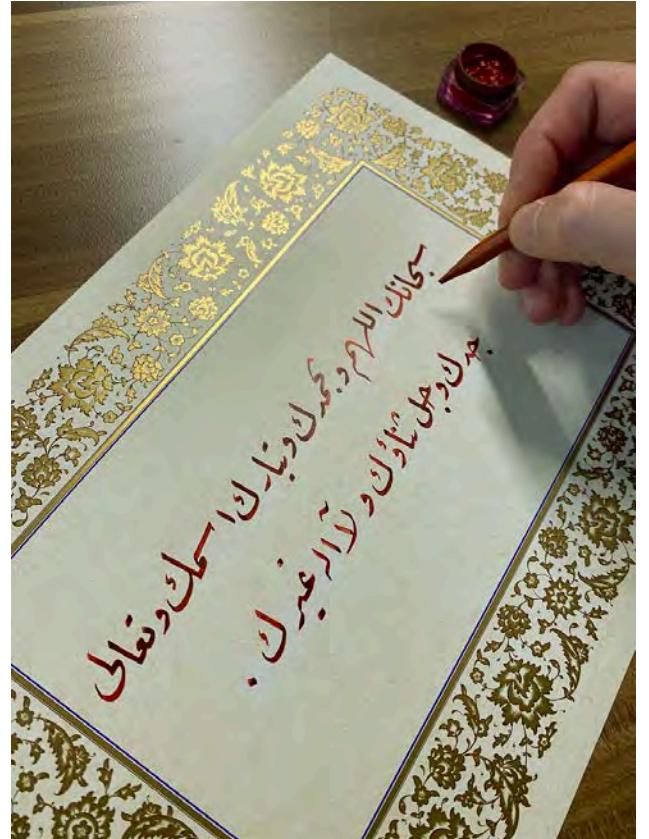 سبحانك اللهم وبحمدك وتبارك اسمك وتعالى
جدك وجل ثناؤك ولآ اله غيرك .